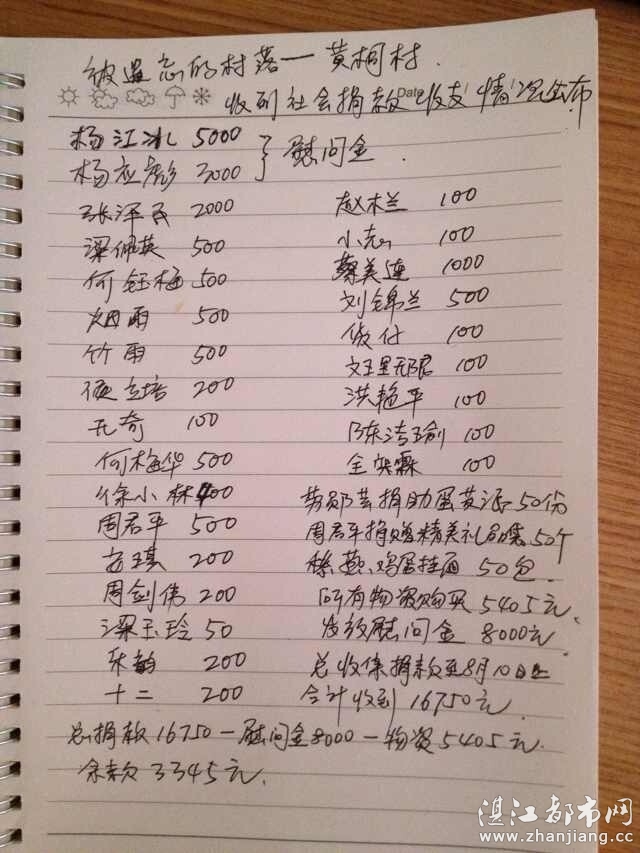 被遗忘的村落一黄桐村.
Date
收到社会捐款收支情况公布
杨江冰 5000
杨应彪 3000
} 慰问金.
张泽民 2000
梁佩英 500
何钰梅 500
烟雨 500
竹雨 500
立培 200
奇 100
何梅华 500
徐小林 400
周君平 500
琪 200
周剑伟 200
梁玉玲 50
张韵 200
十二 200
赵木兰 100
小 100
蔡美连 1000
刘锦兰 500
付 100
100
洪艳平 100
陈洁瑜 100
全 霖 100
芸捐助蛋黄派 50份
周君平捐赠精美礼品 50个
燕、鸡蛋挂面 50包.
所有物资购买 5405元、
发放慰问金 8000元、
总收集捐款至8月10日止
合计收到 16750元.
总捐款 16750 一慰问金8000 一物资 5405元.
余款 3345元.
湛江都市网
www.zhanjiang.cc